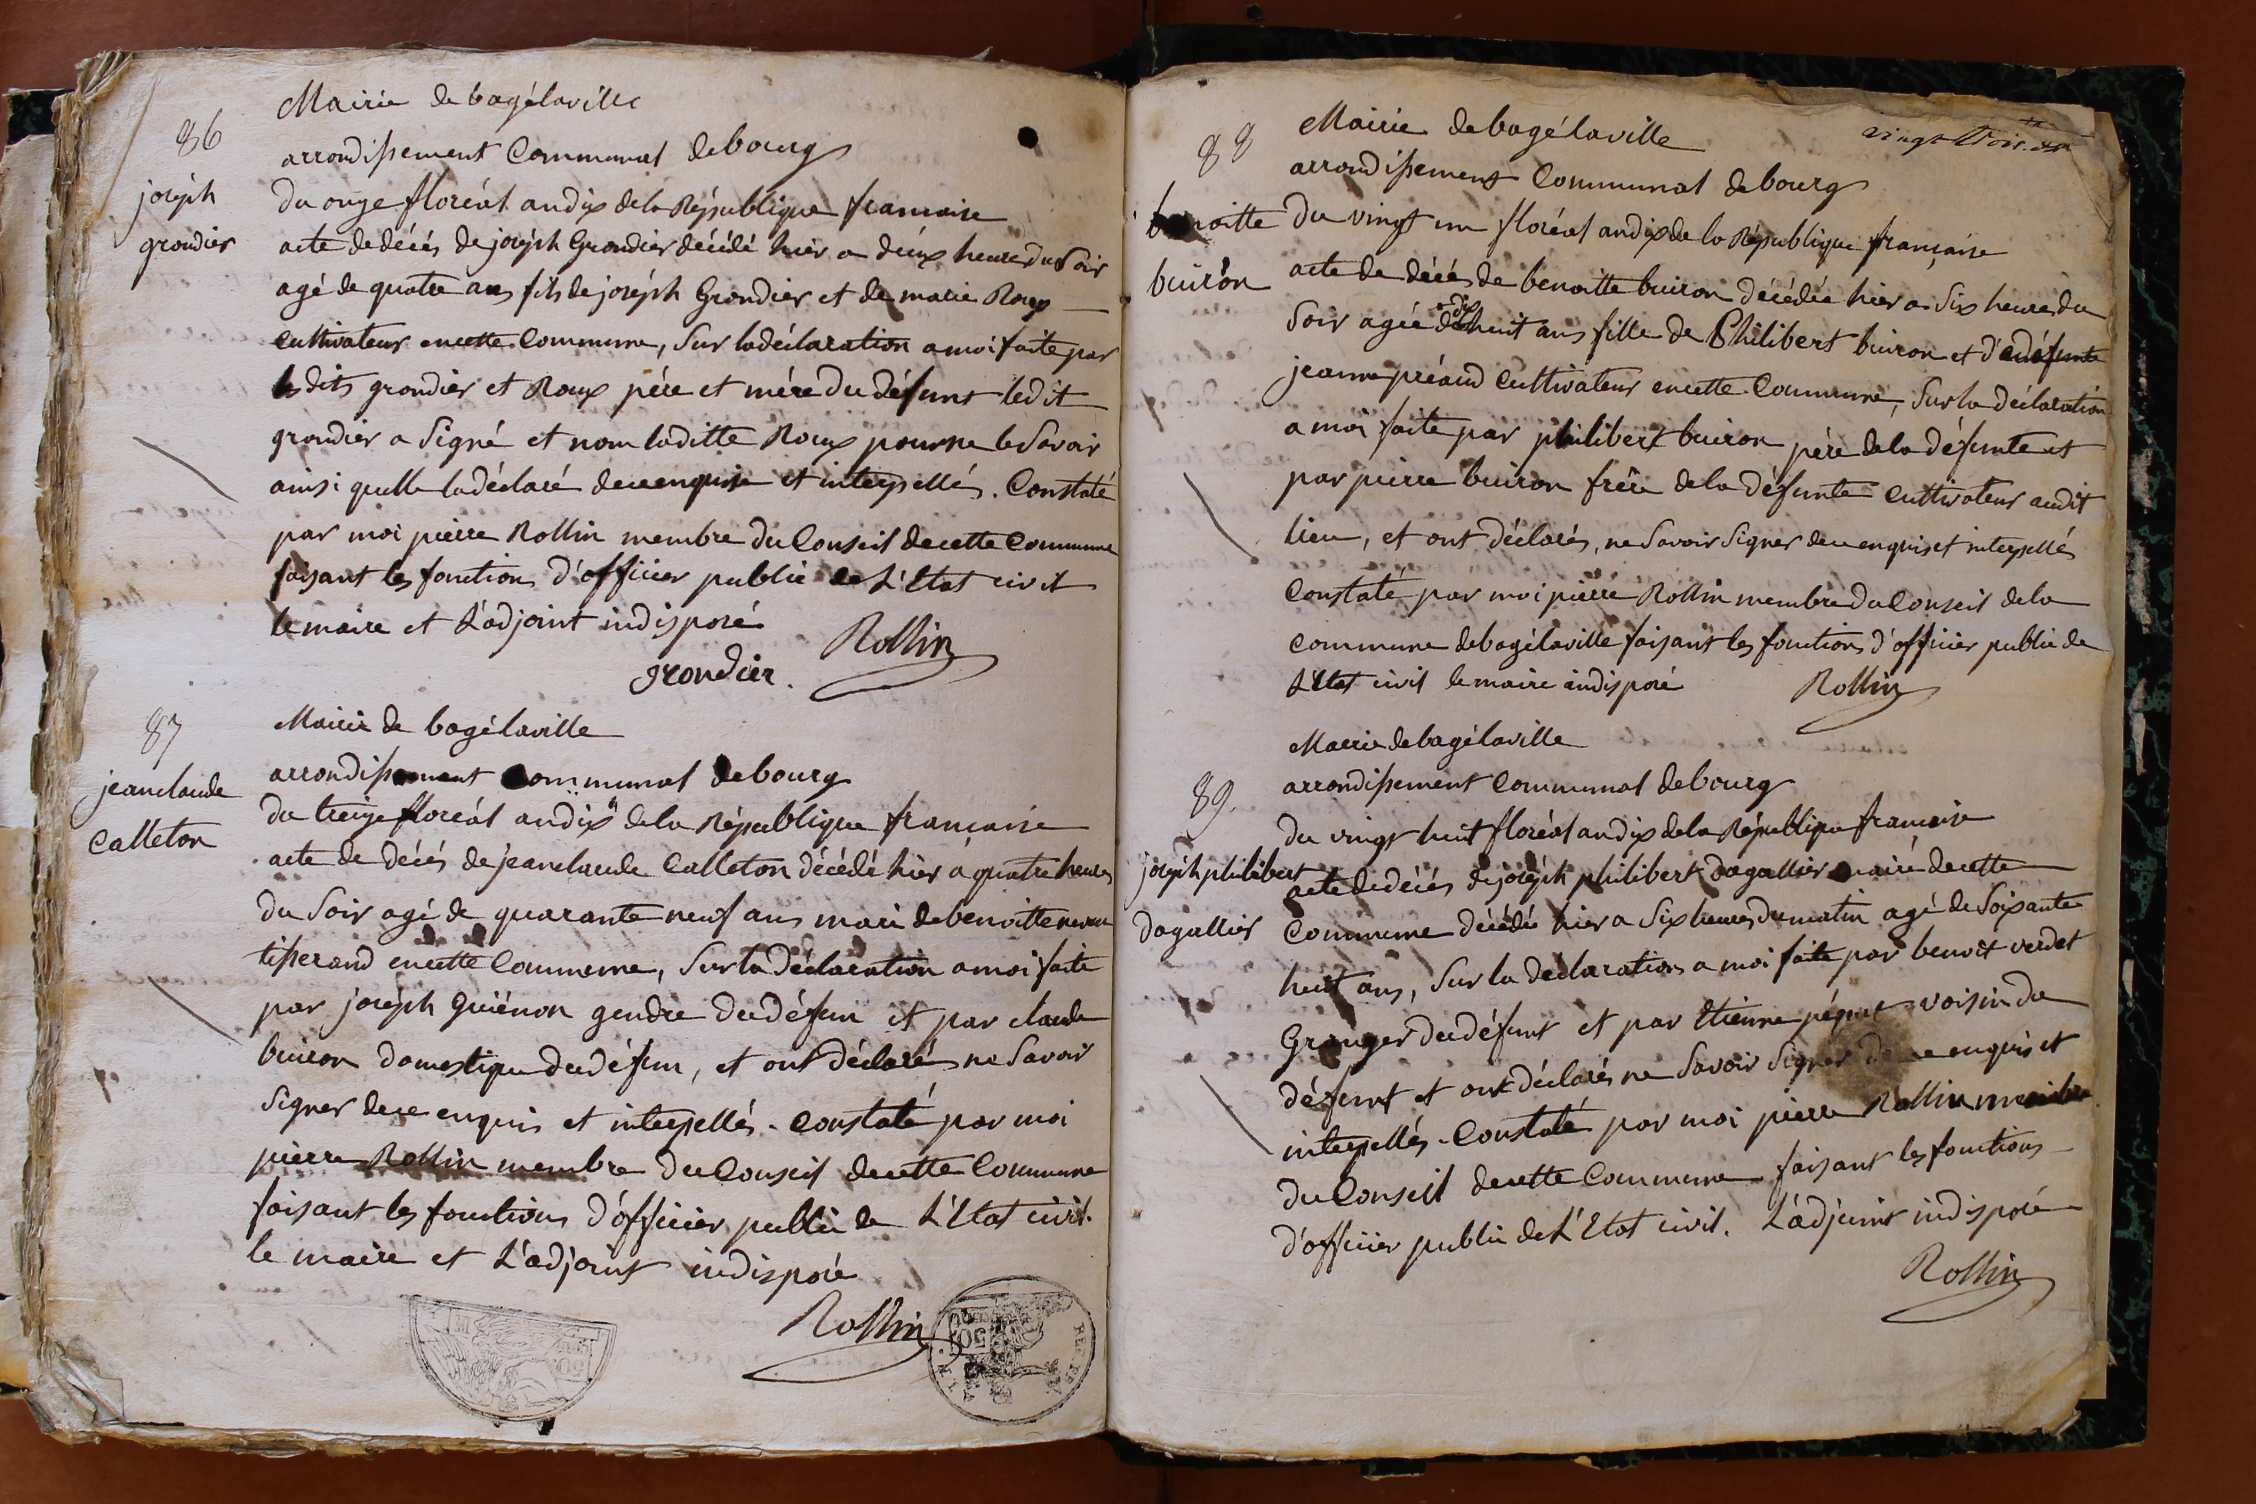 86
joséph
grondier
Mairie de bagélaville
arrondissement Communal de bourg
Du onze floréal an dix de la République francaise
acte de décés de joséph Grondier décédé hièr a deux heures du Soir
agé de quatre ans fils de joséph Grondier et de marie Roux
cultivateur en cette Commune, Sur la déclaration a moi faite par
les dits grondier et Roux pére et mére du défunt ledit
grondier a Signé et nom laditte Roux pour ne le Savoir
ainsi quelle la déclaré de ce enquise et interpellés. Constaté
par moi pierre Rollin membre du Conseil de cette Commune
faisant les fonctions d'officier public de L'Etat civil
le maire et L'adjoint indisposé
Rollin
grondier.
87
jean claude
Calleton
Mairie de bagélaville
arrondissement Communal de bourg
du treize floréal an dix de la République francaise
acte de décés de jean claude Calleton décédé hièr à quatre heures
du Soir agé de quarante neuf ans mari de benoitte
tisserand en cette Commune, Sur la Déclaration a moi faite
par joséph Guiénon gendre du défun et par claude
buiron domestique du défun, et ont déclaré ne Savoir
Signer de ce enquis et interpellés. Constaté par moi
pierre Rollin membre du Conseil de cette Commune
faisant les fonctions d'officier public de L'Etat civil.
le maire et L'adjoint indisposé
Rollin
vingt trois
88
benoitte
buiron
Mairie de bagélaville
arrondissement Communal de bourg
Du vingt un floréal an dix de la République française
acte de décés de benoitte buiron décédée hier a Six heures du
Soir agée de dix huit ans fille de Philibert buiron et de défunte
jeanne préaud cultivateur en cette Commune, Sur la déclaration
a moi faite par philibert buiron pére de la défunte et
par pierre buiron frére de la défunte cultivateur audit
lieu, et ont déclarés, ne Savoir Signer de ce enquis et interpellés
Constaté par moi pierre Rollin membre du Conseil de la
commune de bagélaville faisant les fonctions d'officier public de
L'Etat civil le maire indisposé
Rollin
89.
joséph philibert
dagallier
Mairie de bagélaville
arrondissement Communal de bourg
Du vingt huit floréal an dix de la République francaise
acte de décés de joséph philibert dagallier maire de cette
Commune décédé hier a Six heures du matin agé de Soixante
huit ans, Sur la déclaration a moi faite par benoit verdet
Granger du défunt et par Etienne voisin du
défunt et ont déclarés ne Savoir Signer de ce enquis et
interpellés. Constaté par moi pierre Rollin membre
du Conseil de cette Commune faisant les fonctions
d'officier public de L'Etat civil. L'adjoint indisposé
Rollin